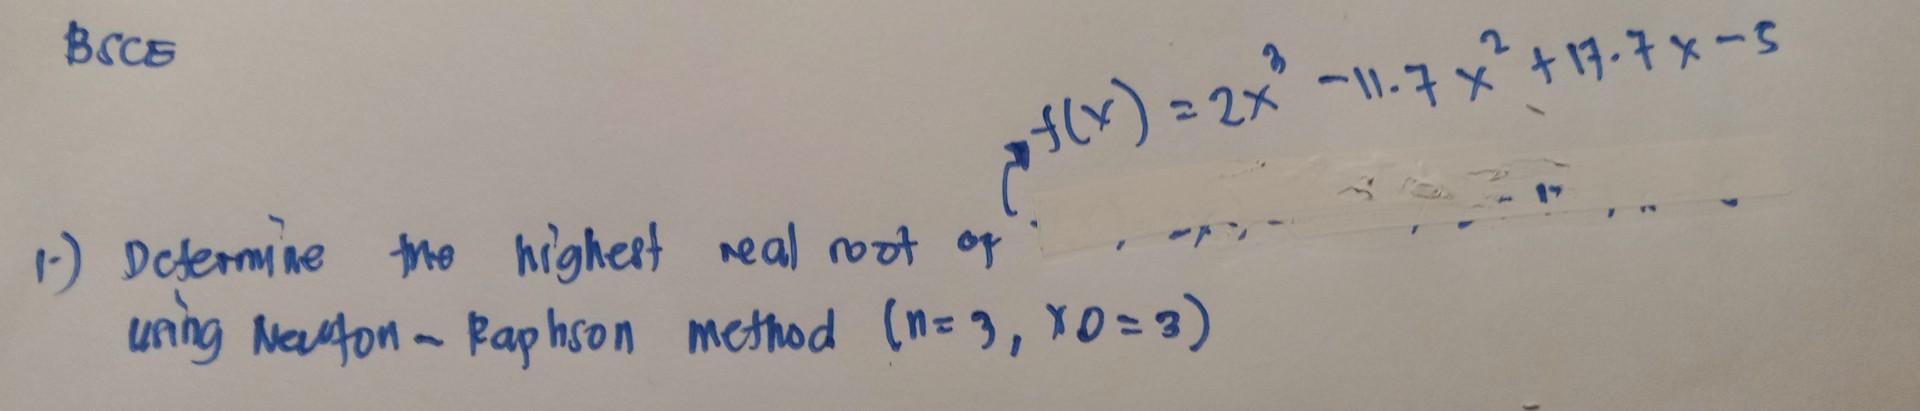 BSCE
f(x) = 2x³ - 11.7x² + 17.7x - 5
1.) Determine the highest real root of
using Newton - Raphson method (n = 3, x0 = 3)